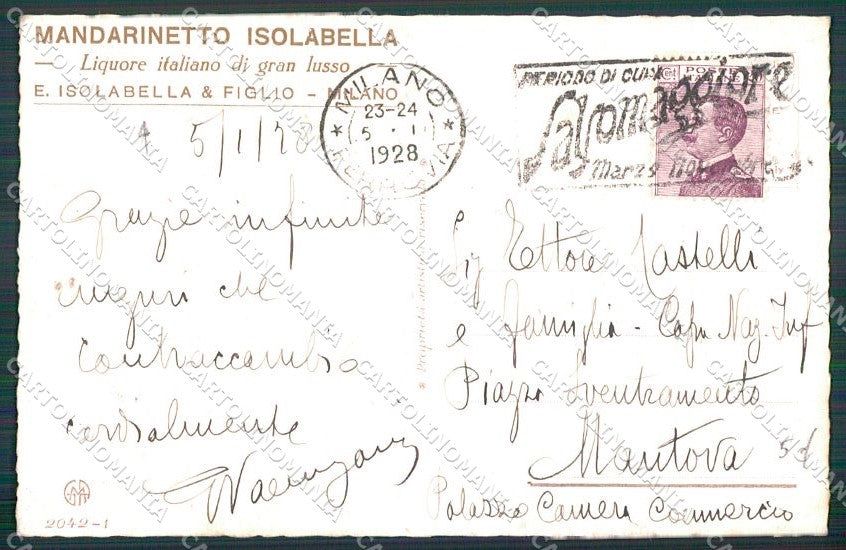 MANDARINETTO ISOLABELLA
— Liquore italiano di gran lusso
E. ISOLABELLA & FIGLIO - MILANO
MILANO
23-24
5 · I
1928
FERROVIA
PERIODO DI CURA
Salsomaggiore
Marzo Novembre
POSTE
5/1/28
Grazie infinite
auguri che
contraccambio
cordialmente
* Proprietà artistica
Sig Ettore Castelli
e famiglia - Cassa Naz. Inf
Piazza Sventramento
Mantova
Palazzo Camera Commercio
2042-1
CARTOLINOMANIA